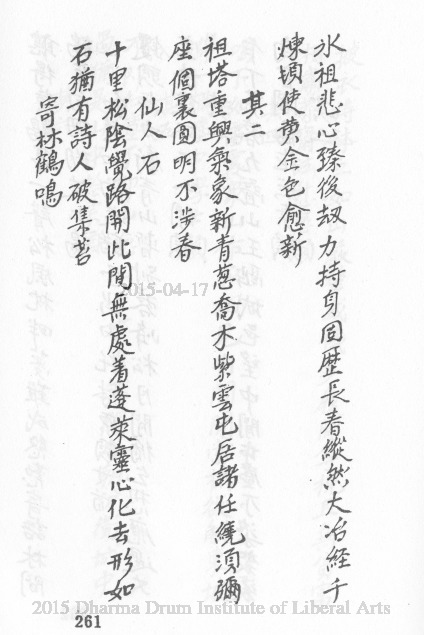 氷祖悲心臻後劫力持身固歷長春縱然大冶経千
煉頓使黄金色愈新
其二
祖塔重興氣象新青蔥喬木紫雲屯居諸任繞須彌
座個裏圓明不涉春
仙人石
十里松陰覺路開此間無處着蓬萊靈心化去形如
石猶有詩人破集苔
寄林鶴鳴
2015-04-17
2015 Dharma Drum Institute of Liberal Arts
261